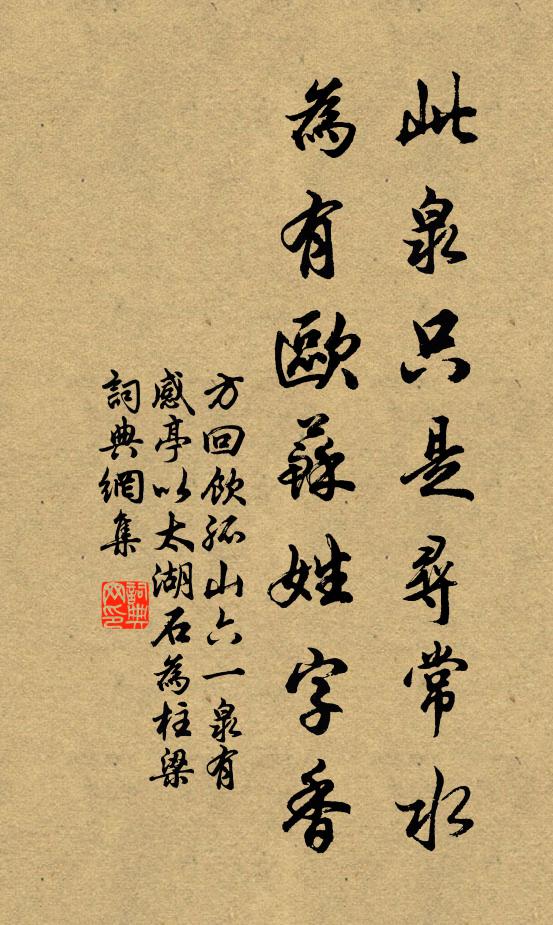 此泉只是尋常水
為有歐蘇姓字香
方回飲孤山六一泉有
感亭以太湖石為柱梁
詞典網集
詞典
網印